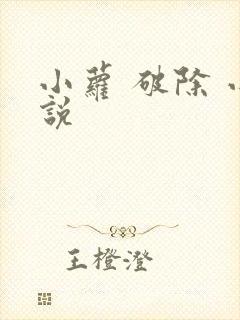 小蘿 破除 小
說
王橙澄